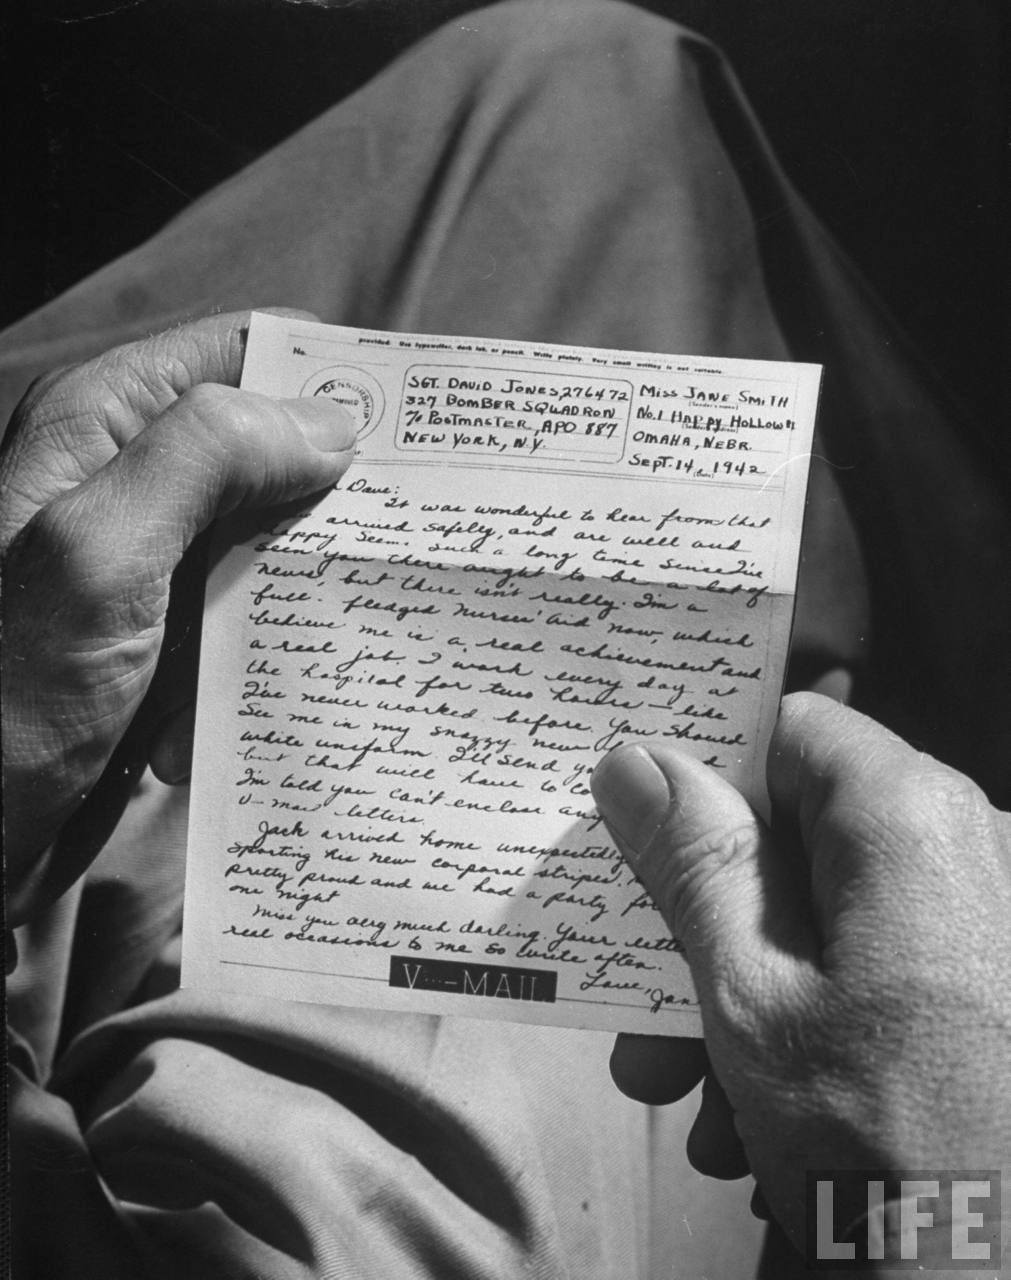 provided. Use typewriter, dark ink, or pencil. Write plainly. Very small writing is not suitable.
No.
CENSORSHIP
SGT. DAVID JONES, 276472
327 BOMBER SQUADRON
% POSTMASTER, APO 887
NEW YORK, N.Y.
MISS JANE SMITH
(Sender's name)
No. 1 HAPPY HOLLOW Bl
OMAHA, NEBR.
SEPT. 14, 1942
(Date)
Dave:
It was wonderful to hear from that
arrived safely, and are well and
happy. Seems such a long time since I've
seen you there ought to be a lot of
news, but there isn't really. I'm a
full-fledged Nurses' Aid now, which
believe me is a real achievement and
a real job. I work every day at
the hospital for two hours — like
I've never worked before. You should
see me in my snazzy new
white uniform. I'll send yo
but that will have to co
I'm told you can't enclose any
V-mail letters.
Jack arrived home unexpectedly
sporting his new corporal stripes.
pretty proud and we had a party fo
one night
Miss you very much darling. Your lette
real occasions to me so write often.
Love, Jan
V···–MAIL
LIFE